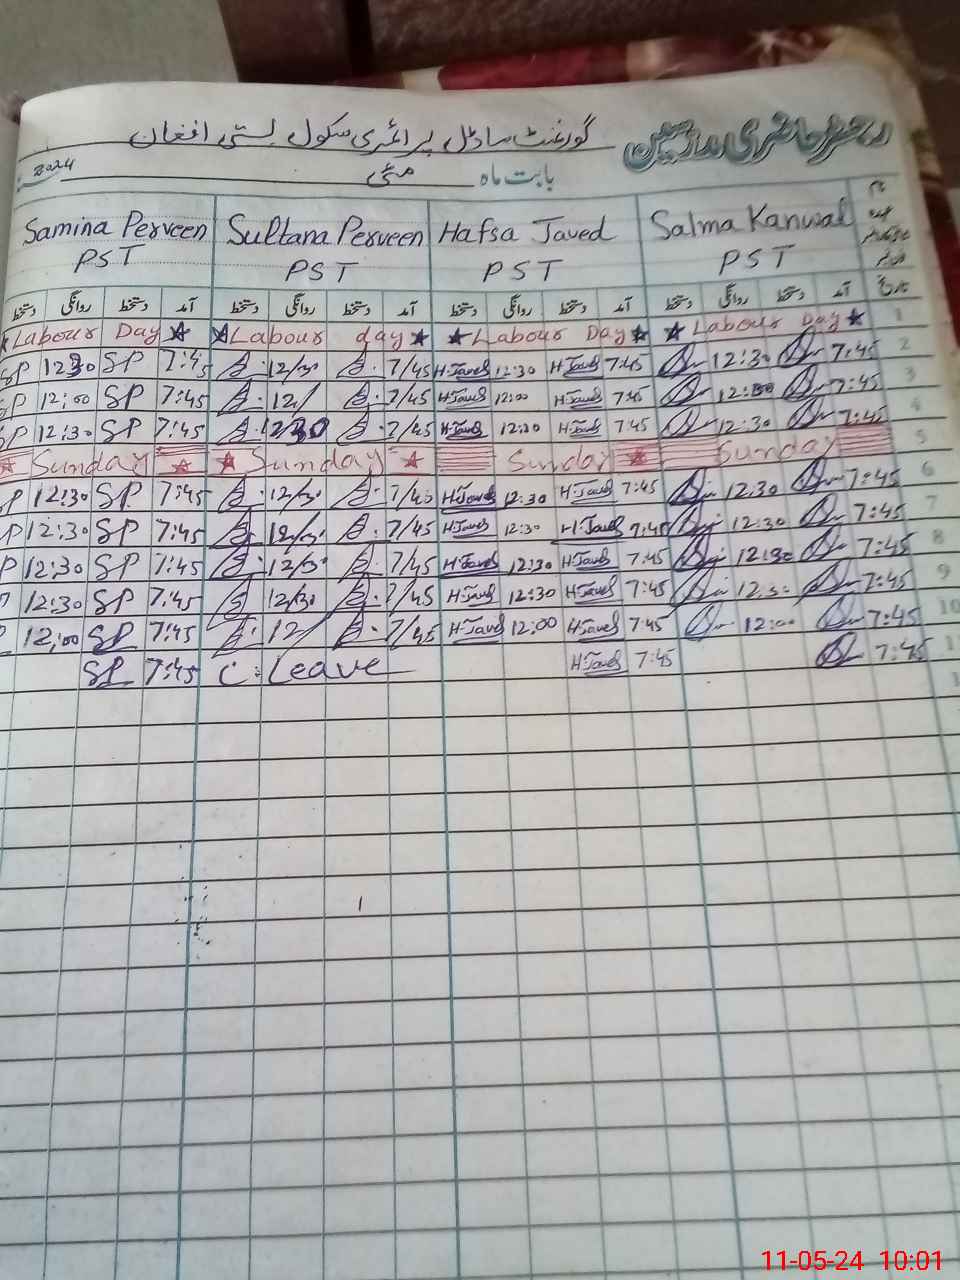 رجسٹر حاضری ملازمین گورنمنٹ ماڈل پرائمری سکول بستی افغان
بابت ماہ مئی 2024
Samina Perveen Sultana Perveen Hafsa Javed Salma Kanwal نام
PST PST PST PST
دستخط روانگی دستخط آمد دستخط روانگی دستخط آمد دستخط روانگی دستخط آمد دستخط روانگی دستخط آمد تاریخ
Labour Day ★ ★ Labour day ★ ★ Labour Day ★ ★ Labour Day ★ 1
SP 12:30 SP 7:45 12/30 7/45 H.Javed 12:30 H.Javed 7:45 12:30 7:45 2
SP 12:00 SP 7:45 12/ 7/45 H.Javed 12:00 H.Javed 7:45 12:00 7:45 3
SP 12:30 SP 7:45 12/30 7/45 H.Javed 12:30 H.Javed 7:45 12:30 7:45 4
★ Sunday ★ ★ Sunday ★ Sunday ★ Sunday 5
SP 12:30 SP 7:45 12/30 7/45 H.Javed 12:30 H.Javed 7:45 12:30 7:45 6
SP 12:30 SP 7:45 12/30 7/45 H.Javed 12:30 H.Javed 7:45 12:30 7:45 7
SP 12:30 SP 7:45 12/30 7/45 H.Javed 12:30 H.Javed 7:45 12:30 7:45 8
12:30 SP 7:45 12/30 7/45 H.Javed 12:30 H.Javed 7:45 12:30 7:45 9
12:00 SP 7:45 12/ 7/45 H.Javed 12:00 H.Javed 7:45 12:00 7:45 10
SP 7:45 C. Leave H.Javed 7:45 7:45 11
11-05-24 10:01